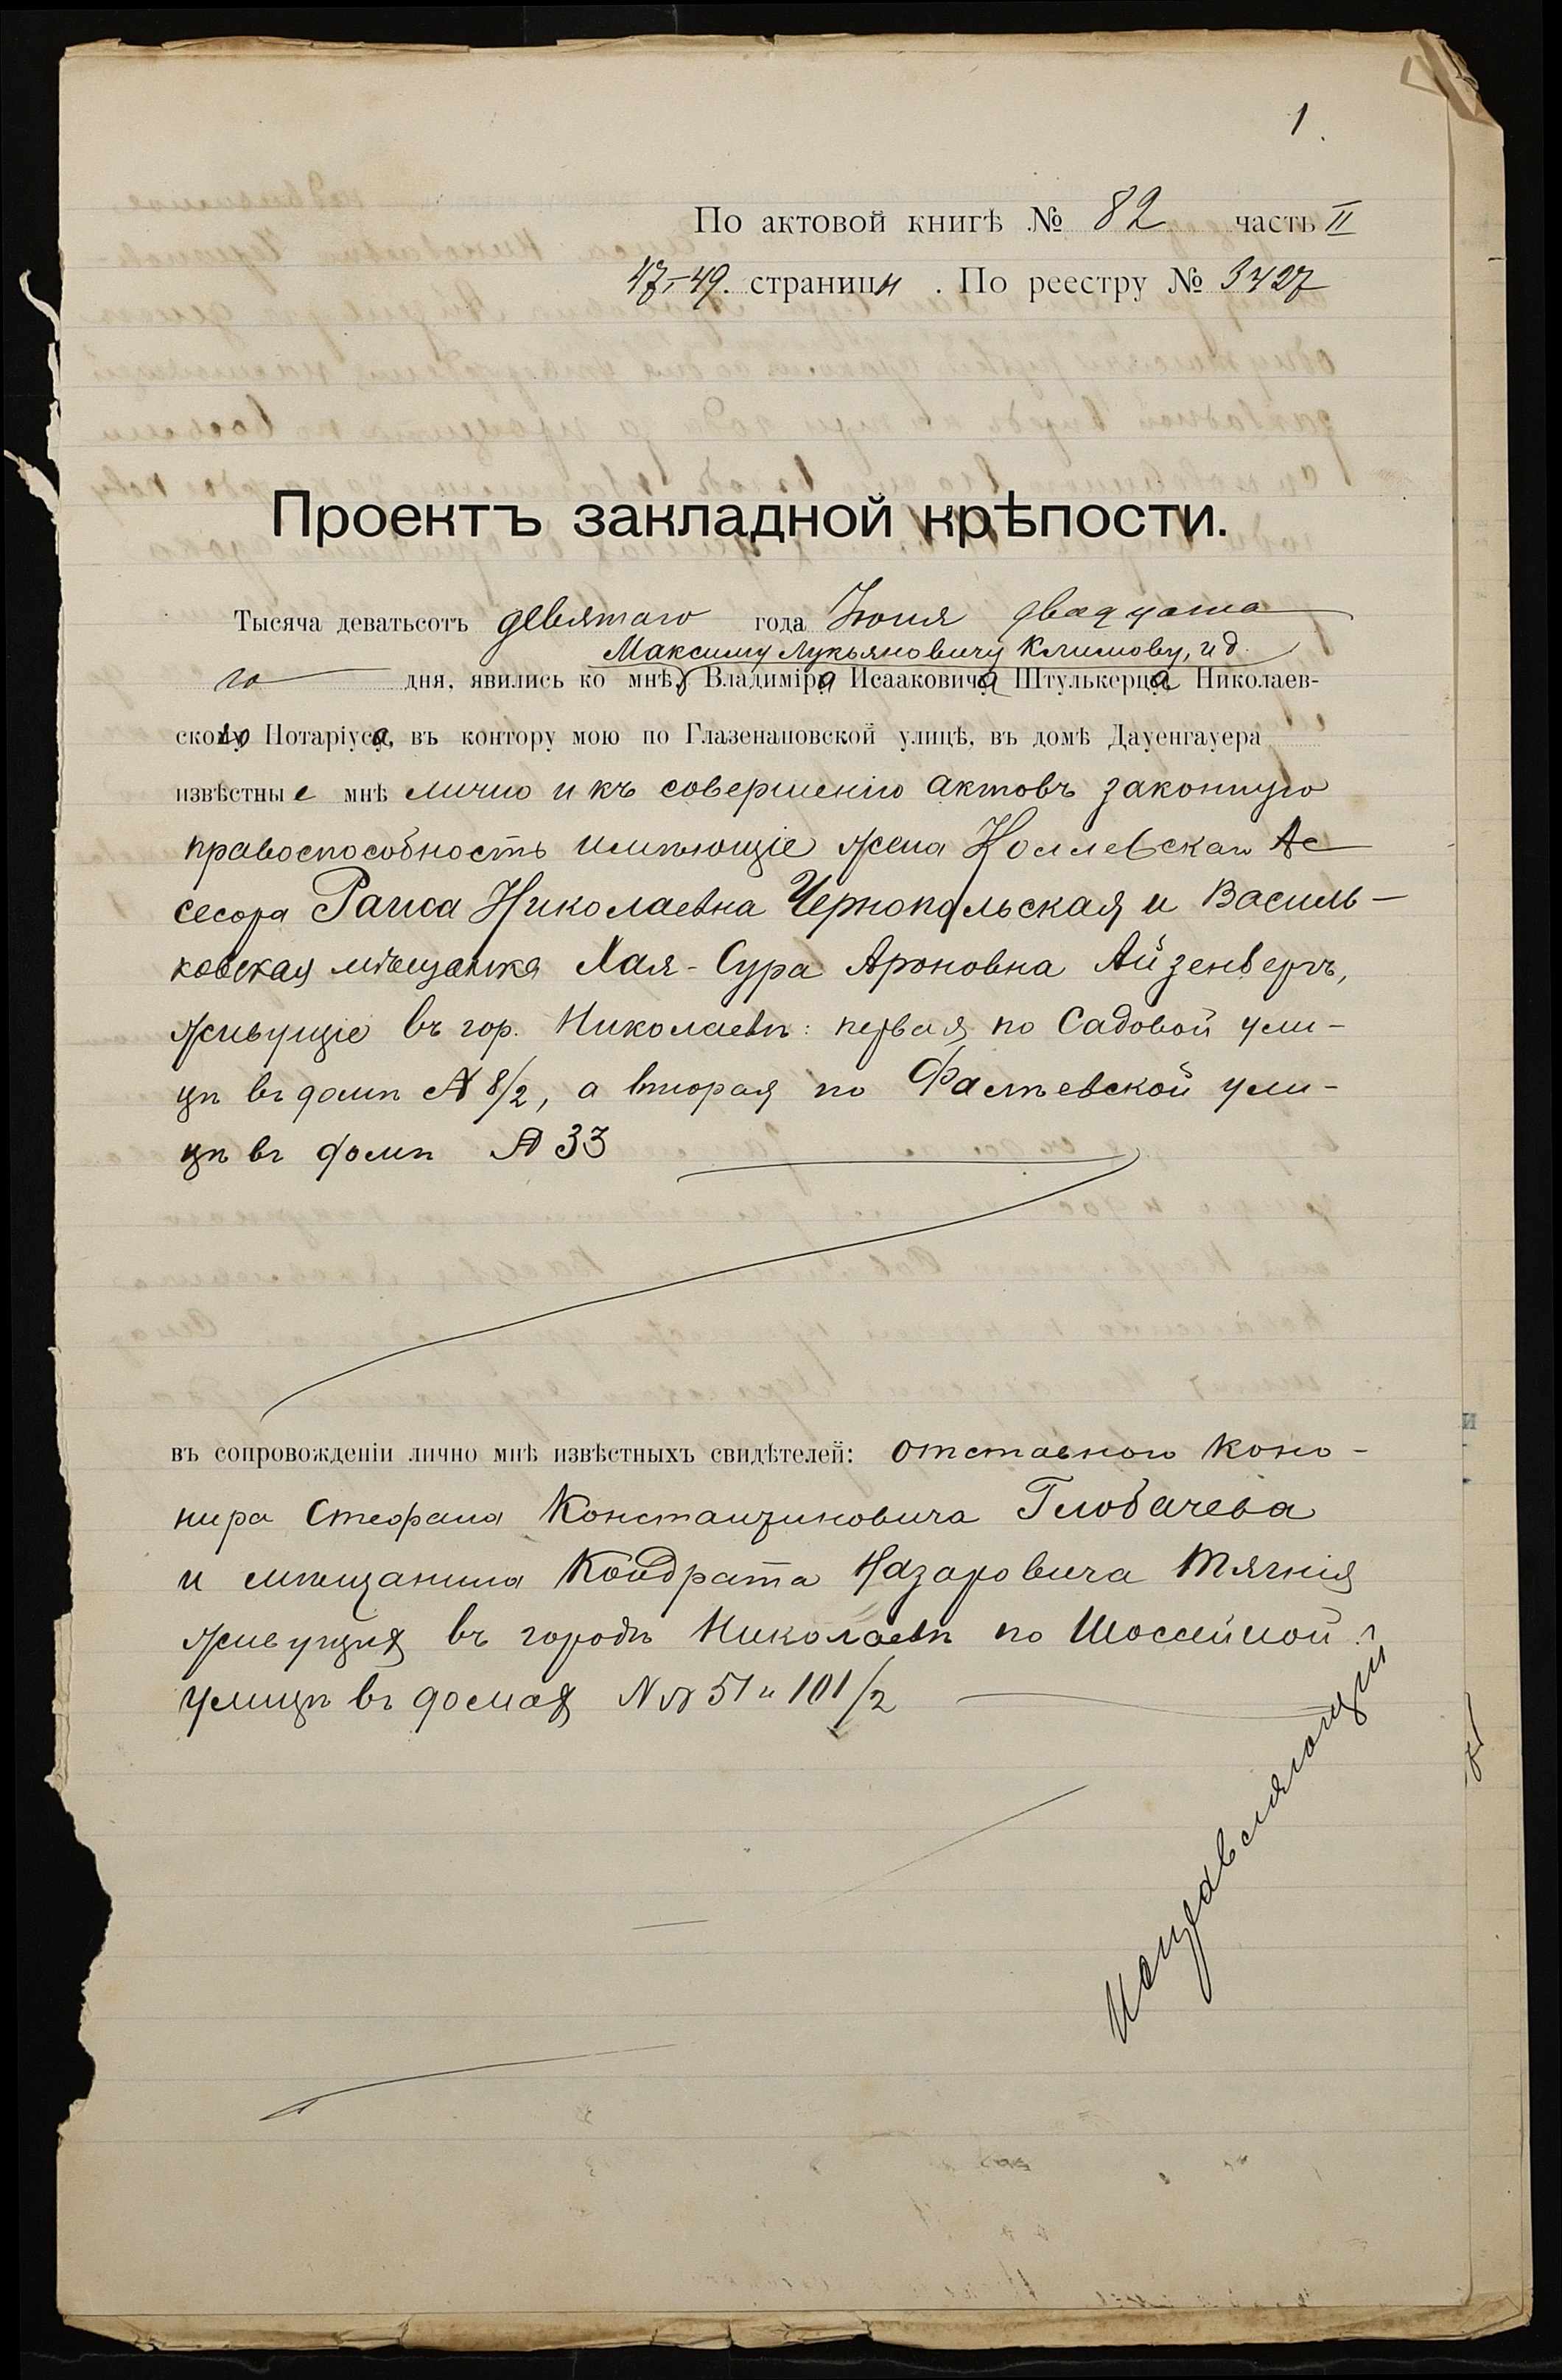 1.
По актовой книгѣ № 82 часть II
47-49. страницы. По реестру № 3427
Проектъ закладной крѣпости.
Тысяча деватьсотъ девятаго года Іюня двадцата
Максиму Лукьяновичу Климову, и д.
го дня, явились ко мнѣ, Владиміра Исааковича Штулькерца Николаев-
скаго Нотаріуса, въ контору мою по Глазенаповской улицѣ, въ домѣ Дауенгауера
извѣстные мнѣ лично и къ совершенію актовъ законную
правоспособность имѣющіе жена Коллежскаго Ас
сесора Раиса Николаевна Чернопольская и Василь-
ковская мѣщанка Хая-Сура Ароновна Айзенбергъ,
живущіе въ гор. Николаевѣ: первая по Садовой ули-
цѣ въ домѣ № 8/2, а вторая по Фалѣевской ули-
цѣ въ домѣ № 33
въ сопровожденіи лично мнѣ извѣстныхъ свидѣтелей: отставного кано-
нира Стефана Константиновича Глобачева
и мѣщанина Кондрата Назаровича Тягнія
живущихъ въ городѣ Николаевѣ по Шоссейной
улицѣ въ домахъ №№ 51 и 101/2